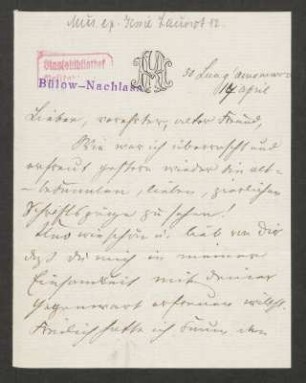 Mus. ep. Karl Lausrot 12
Staatsbibliothek
Bülow-Nachlass
50 Lung'
14 April
Lieber, verehrter, alter Freund,
Wie war ich überrascht und
erfreut gestern wieder die alt-
bekannten, lieben, zierlichen
Schriftzüge zu sehen!
Und wie schön u. lieb von Dir
daß Du mich in meiner
Einsamkeit mit Deiner
Gegenwart erfreuen willst.
Freilich hatte ich kaum den